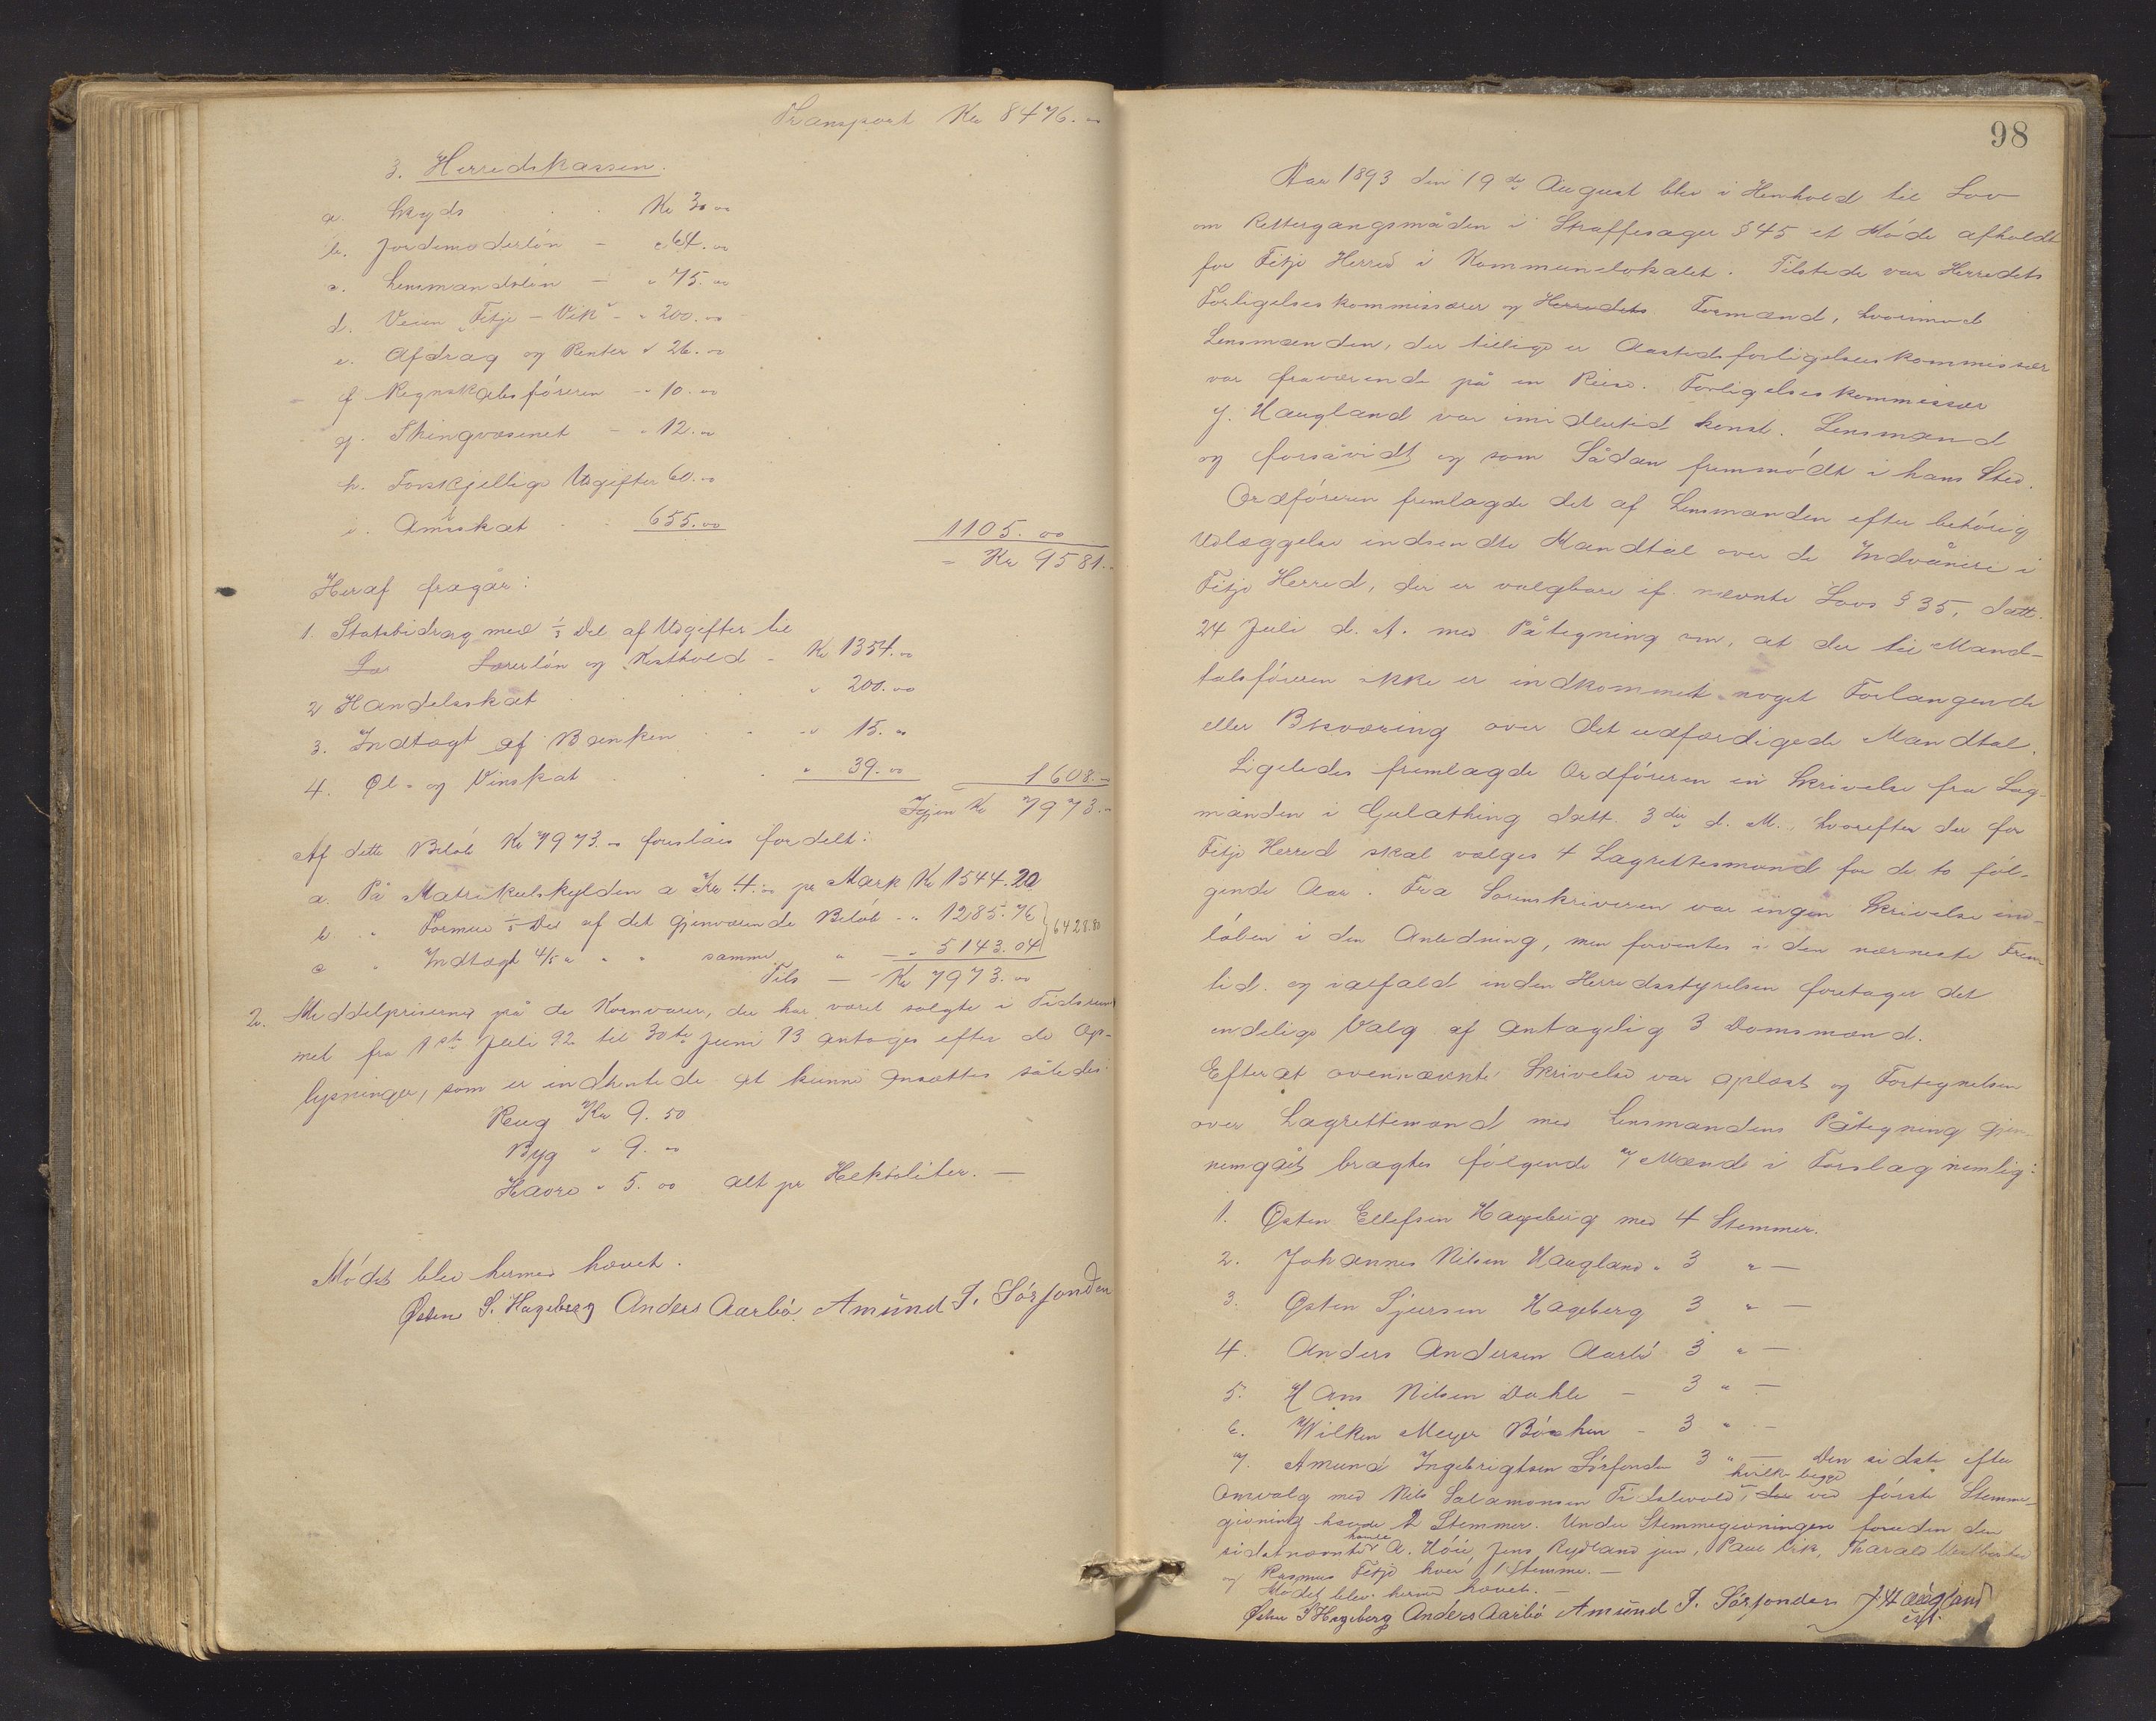 Transport Kr 8476.-
3. Herredskassen.
a. Skyds Kr 30.00
b. Jordemoderløn - " 64.00
c. Lensmandsløn - " 75.00
d. Veien "Fitje - Vik" - " 200.00
e. Afdrag og Renter " 26.00
f. Regnskabsføreren - " 10.00
g. Thingvæsenet - " 12.00
h. Forskjellige Udgifter 60.00
i. Amtsskat 655.00 1105.00
- Kr 9581.-
Heraf fragår:
1. Statsbidrag med 1/3 Del af Udgifter til
Lærerløn og Kosthold - Kr 1354.00
2 Handelsskat " 200.00
3. Indtægt af Banken - " 15.00
4. Øl- og Vinskat " 39.00 1608.-
Igjen Kr 7973.-
Af dette Beløb Kr 7973.00 foreslåes fordelt:
a. På Matrikulskylden a Kr 4.00 pr Mark Kr 1544.20
b. " Formue 1/5 Del af det gjenværende Beløb - " 1285.76 } 6428.80
c " Indtægt 4/5 " " " samme " - " 5143.04
Tils - Kr 7973.00
2. Middelpriserne på de Kornvarer, der har været solgte i Tidsrum
met fra 1ste Juli 92 til 30te Juni 93 antages efter de Op-
lysninger, som er indhentede at kunne ansættes således:
Rug Kr 9.50
Byg " 9.00
Havre " 5.00 alt pr Hektoliter. -
Mødet blev hermed hævet.
Østen S. Hageberg Anders Aarbø. Amund I. Sørfonden
98
Aar 1893 den 19de August blev i Henhold til Lov
om Rettergangsmåden i Straffesager § 45 et Møde afholdt
for Fitje Herred i Kommunelokalet. Tilstede var Herredets
Forligelseskommissærer og Herredets Formænd, hvorimod
Lensmanden, der tillige er Aastedsforligelseskommissær
var fraværende på en Reise. Forligelseskommissær
J. Haugland var imidlertid konst. Lensmand
og forsåvidt og som Sådan fremmødt i hans Sted.
Ordføreren fremlagde det af Lensmanden efter behørig
Udlæggelse indsendte Mandtal over de Indvånere i
Fitje Herred, der er valgbare if. nævnte Lovs § 35, datt.
24 Juli d. A. med Påtegning om, at der til Mand-
talsføreren ikke er indkommet noget Forlangende
eller Besværing over det udfærdigede Mandtal.
Ligeledes fremlagde Ordføreren en Skrivelse fra Lag-
manden i Gulathing datt. 3die d. M., hvorefter der for
Fitje Herred skal vælges 4 Lagrettesmænd for de to føl-
gende Aar. Fra Sorenskriveren var ingen Skrivelse ind-
løben i den Anledning, men forventes i den nærmeste Frem-
tid. og ialfald inden Herredsstyrelsen foretager det
endelige Valg af antagelig 3 Domsmænd.
Efterat ovennævnte Skrivelse var oplæst og Fortegnelsen
over Lagrettemænd med Lensmandens Påtegning gjen-
nemgået bragtes følgende 7 Mænd i Forslag nemlig:
1. Østen Ellefsen Hageberg med 4 Stemmer.
2. Johannes Nilsen Haugland " 3 " -
3. Østen Sjursen Hageberg 3 " -
4. Anders Andersen Aarbø 3 " -
5. Hans Nilsen Dahle - 3 " -
6. Wilken Meyer - 3 " -
7. Amund Ingebrigtsen Sørfonden 3 " - Den sidste efter
Omvalg med Nils Salamonsen Tislevold, hvilke begge der ved første Stemme-
givning havde 2 Stemmer. Under Stemmegivningen foruden den
sidstnævnte havde A. Høie, Jens Rydland jun, Paul Vik, Tharald
og Rasmus Fitje hver 1 Stemme. -
Mødet blev hermed hævet. -
Østen S Hageberg Anders Aarbø Amund I. Sørfonden J Haugland